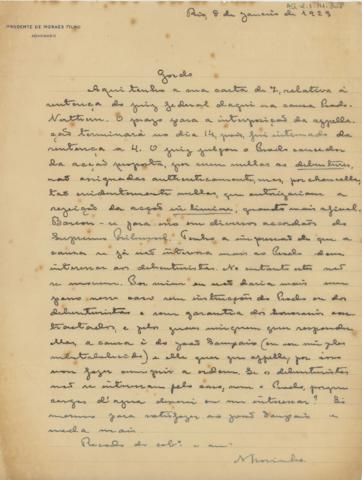 PRUDENTE DE MORAES FILHO
ADVOGADO
Rio, 8 de janeiro de 1929
Gordo
Aqui tenho a sua carta de 7, relativa á
sentença do juiz federal daqui na causa Prado
Northern. O prazo para a interposição da appella-
ção terminará no dia 14, pois fui intimado da
sentença a 4. O juiz julgou o Prado carecedor
da acção proposta, por serem nullas as debentures,
não assignadas authenticamente, mas, por chancella,
tão evidentemente nullas, que autorizavam a
rejeição da acção in limine, quanto mais afinal.
Baseou-se para isso em diversos accordãos do
Supremo Tribunal. Tenho a impressão de que a
causa se já não interessa mais ao Prado deve
interessar aos debenturistas. No entanto estes não
se movem. Por mim eu não daria mais um
passo nesse caso sem instrucções do Prado ou dos
debenturistas e sem garantia dos honorarios con-
tractados, e pelos quaes ninguem quer responder.
Mas, a causa é do José Sampaio (eu sou simples
substabelecido) e elle quer que appelle, por isso
vou fazer cumprir a ordem. Se os debenturistas
não se interessam pelo caso, nem o Prado, porque
cargas d'agua deverei eu me interessar? Si
só para satisfazer ao José Sampaio e
nada mais.
Recado do